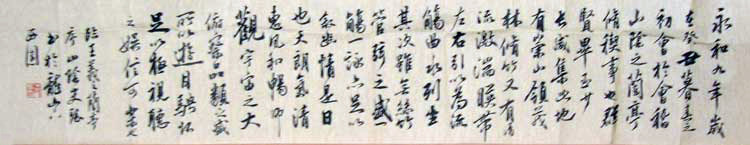 永和九年歲
在癸丑暮春之
初會於會稽
山陰之蘭亭
脩稧事也群
賢畢至少
長咸集此地
有崇山領茂
林脩竹又有清
流激湍暎帶
左右引以為流
觴曲水列坐
其次雖無絲竹
管弦之盛一
觴詠亦足以
敘幽情是日
也天朗氣清
惠風和暢仰
觀宇宙之大
俯察品類之盛
所以遊目騁懷
足以極視聽
之娛信可樂也
臨王羲之蘭亭
序山陰
書於龍山
西園